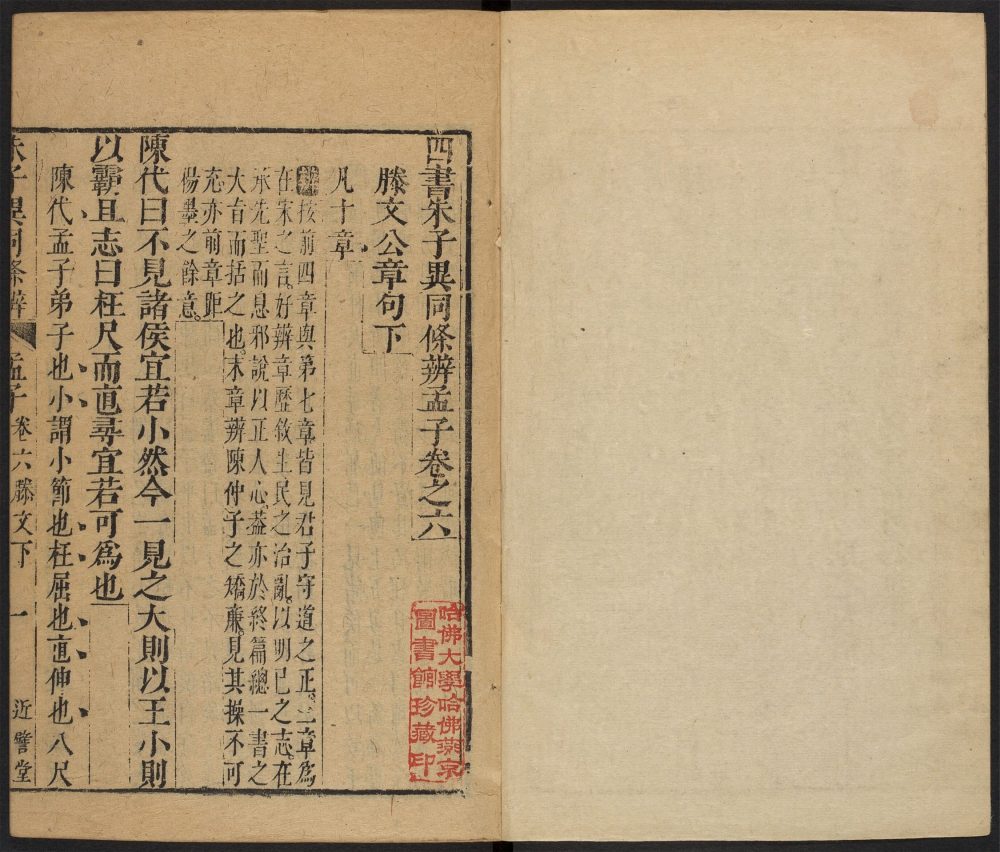 四書朱子異同條辨孟子卷之六
滕文公章句下
凡十章
按前四章與第七章皆見君子守道之正三章爲
在宋之言好辨章歷敘生民之治亂以明已之志在
承先聖而息邪說以正人心葢亦於終篇總一書之
大旨而括之也末章辨陳仲子之矯廉見其操不可
充亦前章距
楊墨之餘意
陳代曰不見諸侯宜若小然今一見之大則以王小則
以霸且志曰枉尺而直尋宜若可爲也
陳代孟子弟子也小謂小節也枉屈也直伸也八尺
朱子異同條辨 孟子 卷六滕文下 一 近譬堂
哈佛大學哈佛燕京
圖書館珍藏印